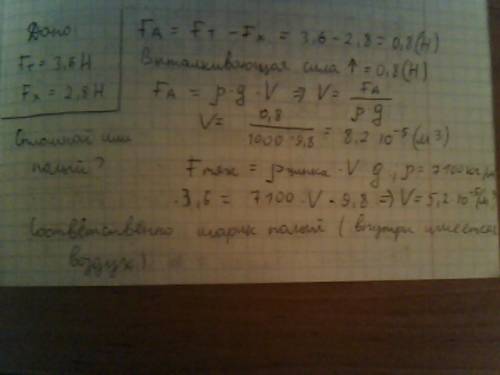 Дано:
Fт = 3,6 Н
Fх = 2,8 Н
Сплошной или
полый?
FА = Fт - Fх = 3,6 - 2,8 = 0,8 (Н)
Выталкивающая сила ↑ = 0,8 (Н)
FА = ρ · g · V ⇒ V = FА / ρ g
V = 0,8 / 1000 · 9,8 = 8,2 · 10⁻⁵ (м³)
Fтяж = ρцинка · V g, ρ = 7100 кг/м
3,6 = 7100 · V · 9,8 ⇒ V = 5,2 · 10⁻⁵ (м³
Соответственно шарик полый (внутри имеется
воздух)